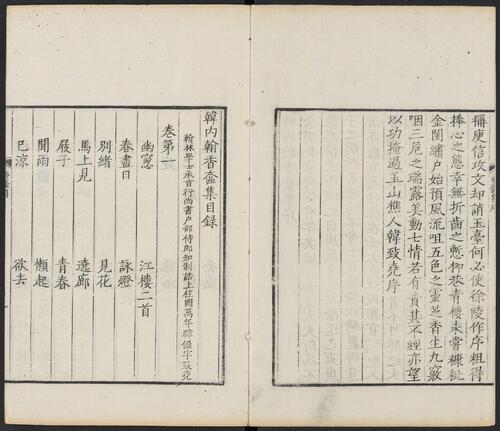 稱庾信攻文却誚玉臺何必使徐陵作序粗得
捧心之態幸無折齒之慙柳巷青樓未嘗糠粃
金閨繡户始預風流咀五色之靈芝香生九竅
咽三危之瑞露美動七情若有責其不經亦望
以功掩過玉山樵人韓致堯序
韓内翰香奩集目録
翰林學士承旨行尚書户部侍郎知制誥上柱國萬年韓偓字致堯
卷第一
幽窻 江樓二首
春盡日 詠燈
別緒 見花
馬上見 遶廊
屐子 青春
聞雨 懶起
已涼 欲去